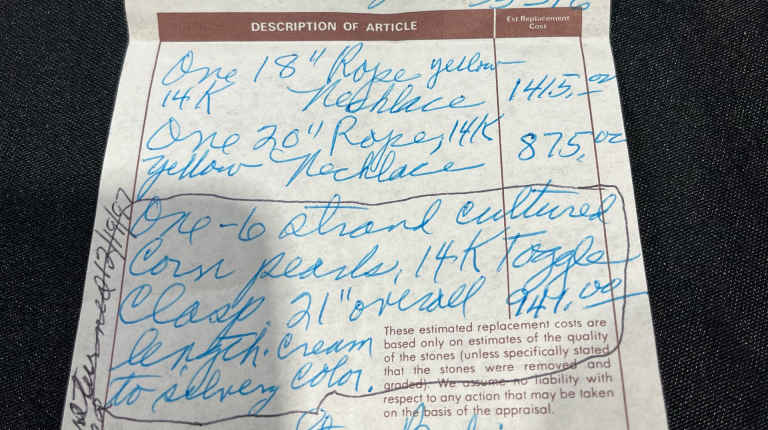 DESCRIPTION OF ARTICLE
Est Replacement
Cost
One 18" Rope yellow
14K Neckhlace 1415.00
One 20" Rope, 14K 875.00
yellow Neckhlace
One-6 strand cultured
Corn pearls, 14K Toggle
Clasp 21" overall 941.00
length. Cream
to silvery color.
These estimated replacement costs are
based only on estimates of the quality
of the stones (unless specifically stated
that the stones were removed and
graded). We assume no liability with
respect to any action that may be taken
on the basis of the appraisal.